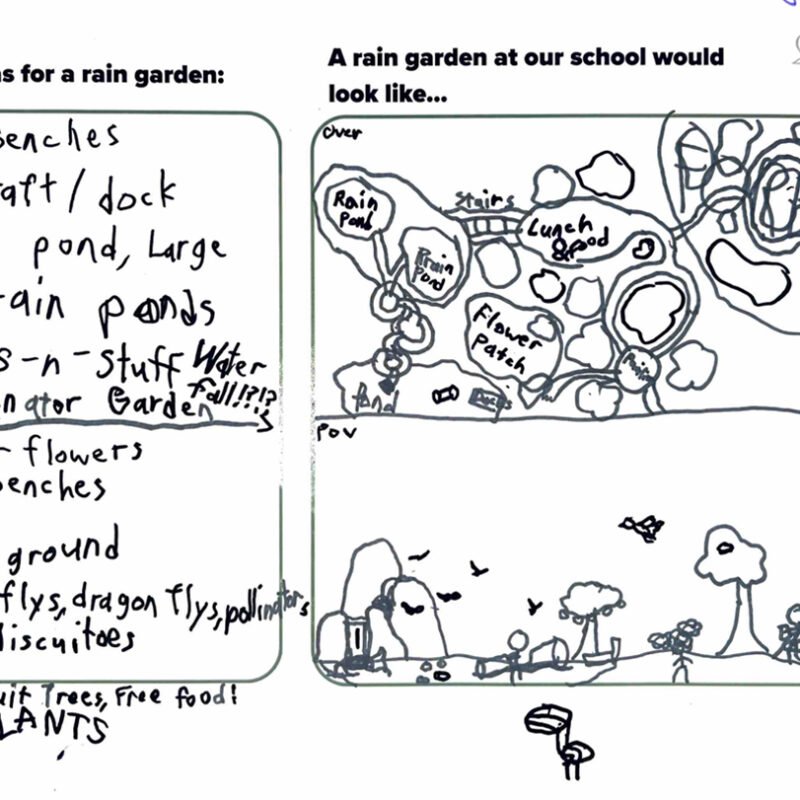 s for a rain garden:
enches
aft / dock
pond, Large
ain ponds
s-n-stuff Water
nator Garden fall!?!?
flowers
enches
ground
flys, dragon flys, pollinators
iscuitoes
uit Trees, Free food!
LANTS
A rain garden at our school would
look like...
Over
Rain
Pond
Stairs
Lunch
& food
Rain
Pond
Flower
Patch
Pond
POV